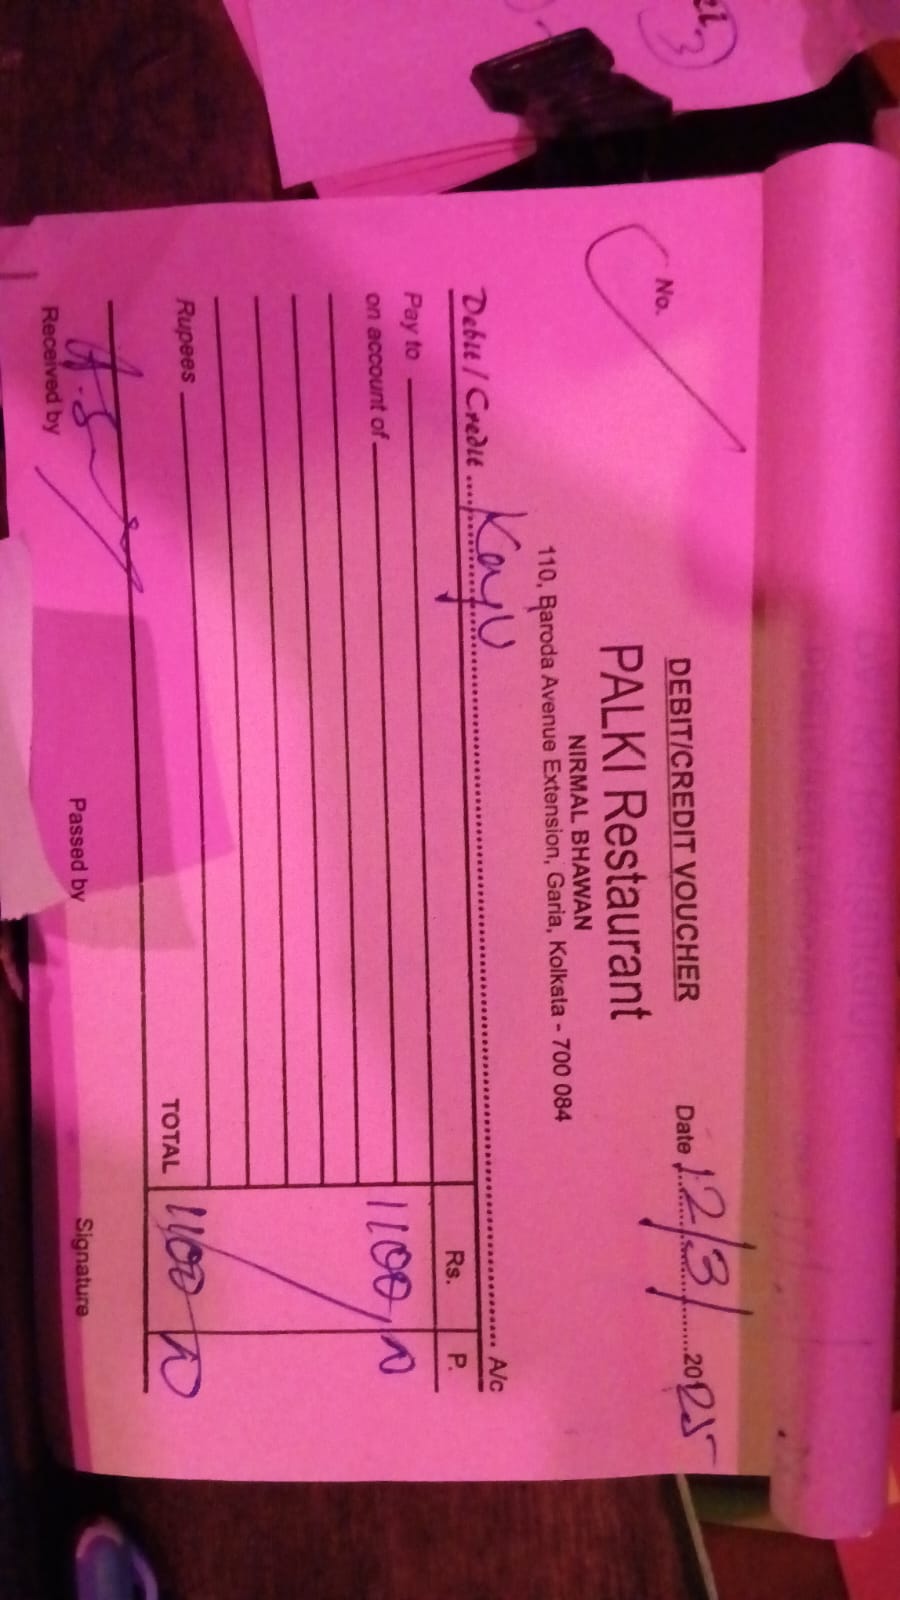 DEBIT/CREDIT VOUCHER
No.
Date 12/3/2025
PALKI Restaurant
NIRMAL BHAWAN
110, Baroda Avenue Extension, Garia, Kolkata - 700 084
Debit / Credit ..... A/c
Rs. P.
Pay to
on account of
1100
Rupees
TOTAL 1100
Received by
Passed by
Signature